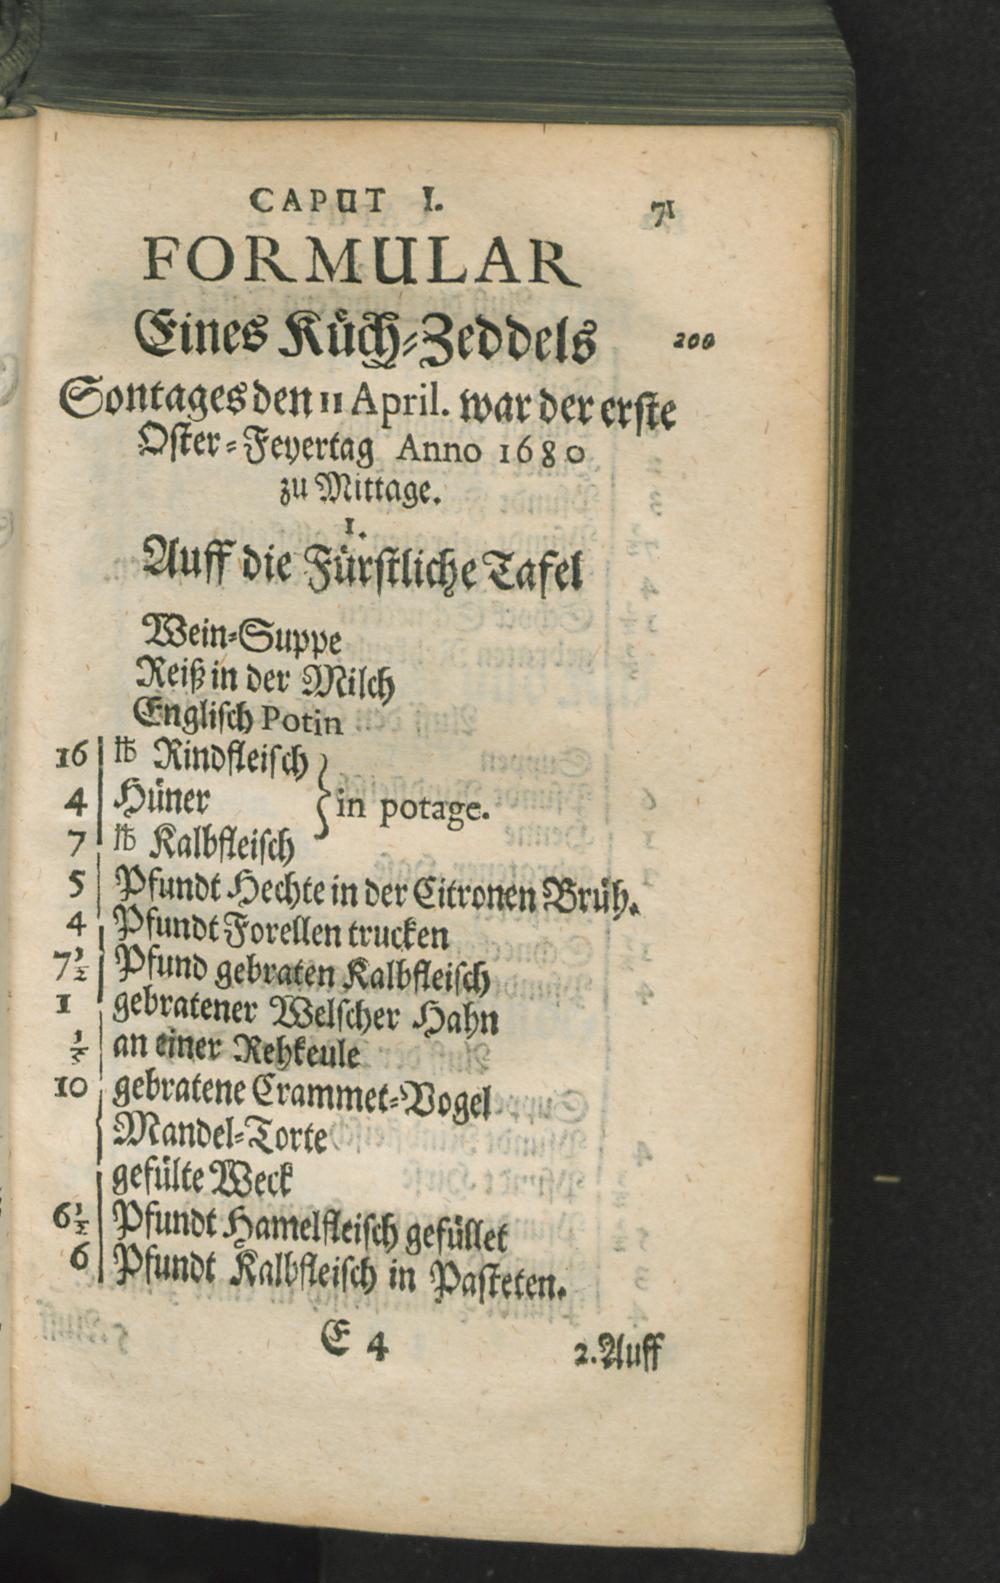 CAPUT I.
71
FORMULAR
Eines Küch-Zeddels
200
Sontages den 11 April. war der erste
Oster-Feyertag Anno 1680
zu Mittage.
1.
Auff die Fürstliche Tafel
Wein-Suppe
Reiß in der Milch
Englisch Potin
16 ℔ Rindfleisch
4 Hüner in potage.
7 ℔ Kalbfleisch
5 Pfundt Hechte in der Citronen Brüh.
4 Pfundt Forellen trucken
7½ Pfund gebraten Kalbfleisch
1 gebratener Welscher Hahn
an einer Rehkeule
10 gebratene Crammet-Vogel
Mandel-Torte
gefülte Weck
6½ Pfundt Hamelfleisch gefüllet
6 Pfundt Kalbfleisch in Pasteten.
E 4
2. Auff